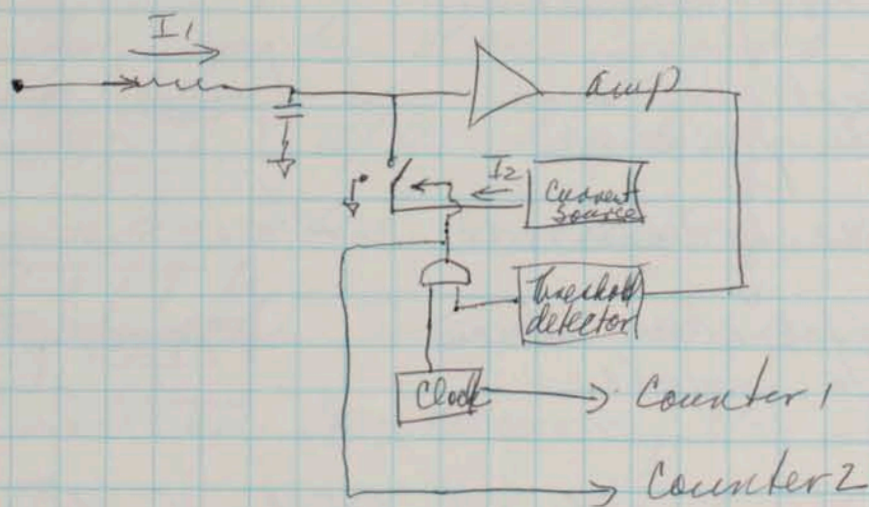 I1
amp
I2
Current
Source
Threshold
detector
Clock
Counter 1
Counter 2